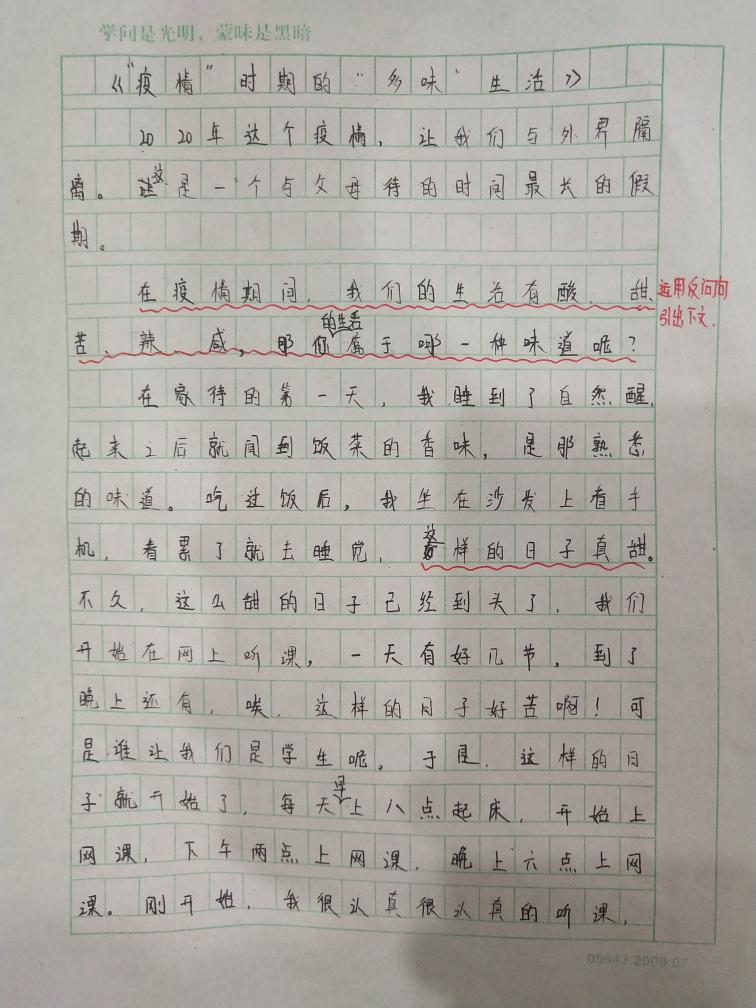 学问是光明，蒙昧是黑暗
《“疫情”时期的“多味”生活》
2020年这个疫情，让我们与外界隔
离。这是一个与父母待的时间最长的假
期。
在疫情期间，我们的生活有酸、甜、
苦、辣、咸，那你的生活属于哪一种味道呢？
运用反问句
引出下文.
在家待的第一天，我睡到了自然醒，
起来之后就闻到饭菜的香味，是那熟悉
的味道。吃过饭后，我坐在沙发上看手
机，看累了就去睡觉，这样的日子真甜。
不久，这么甜的日子已经到头了，我们
开始在网上听课，一天有好几节，到了
晚上还有，唉，这样的日子好苦啊！可
是谁让我们是学生呢。于是，这样的日
子就开始了，每天早上八点起床，开始上
网课，下午两点上网课，晚上六点上网
课。刚开始，我很认真很认真的听课，
05643.2009.07